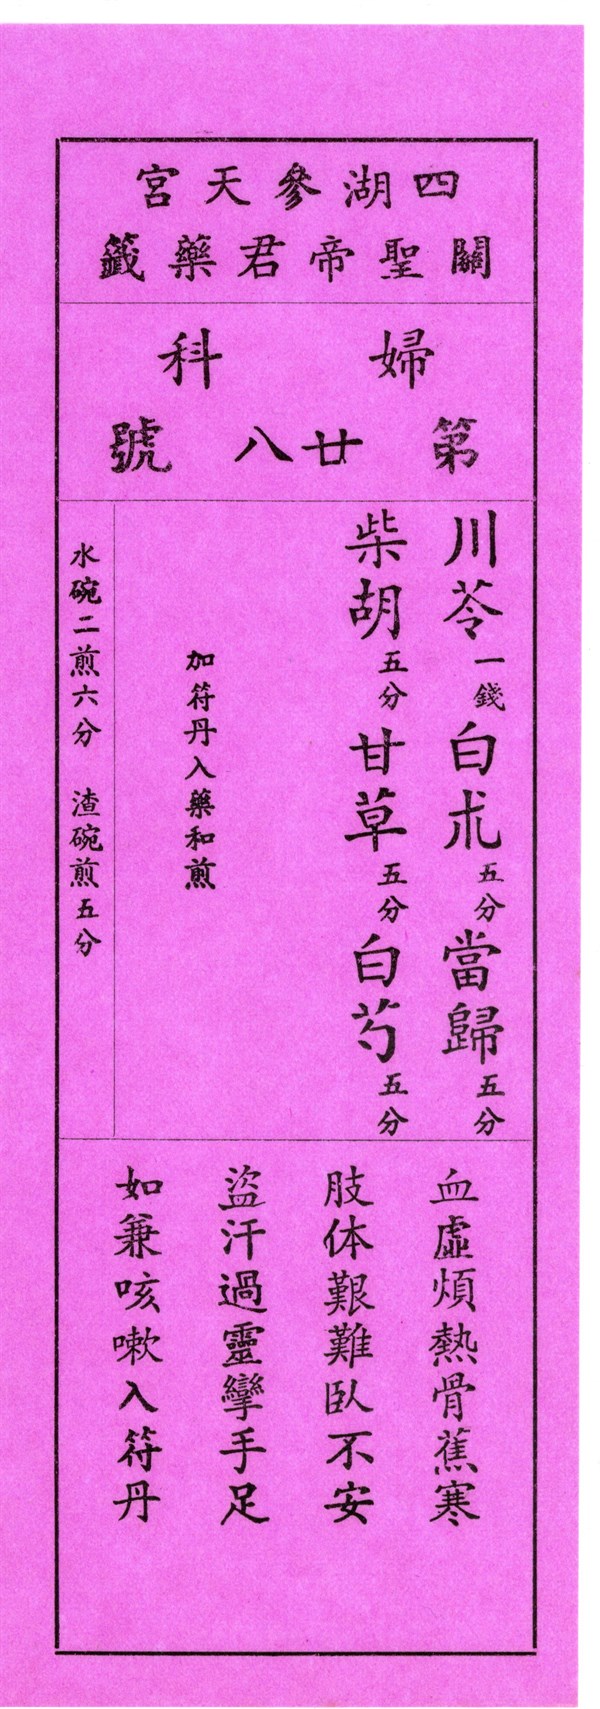 四湖參天宮
關聖帝君藥籤
婦科
第廿八號
川苓一錢白朮五分當歸五分
柴胡五分甘草五分白芍五分
加符丹入藥和煎
水碗二煎六分 渣碗煎五分
血虛煩熱骨蕉寒
肢体艱難臥不安
盜汗過靈攣手足
如兼咳嗽入符丹